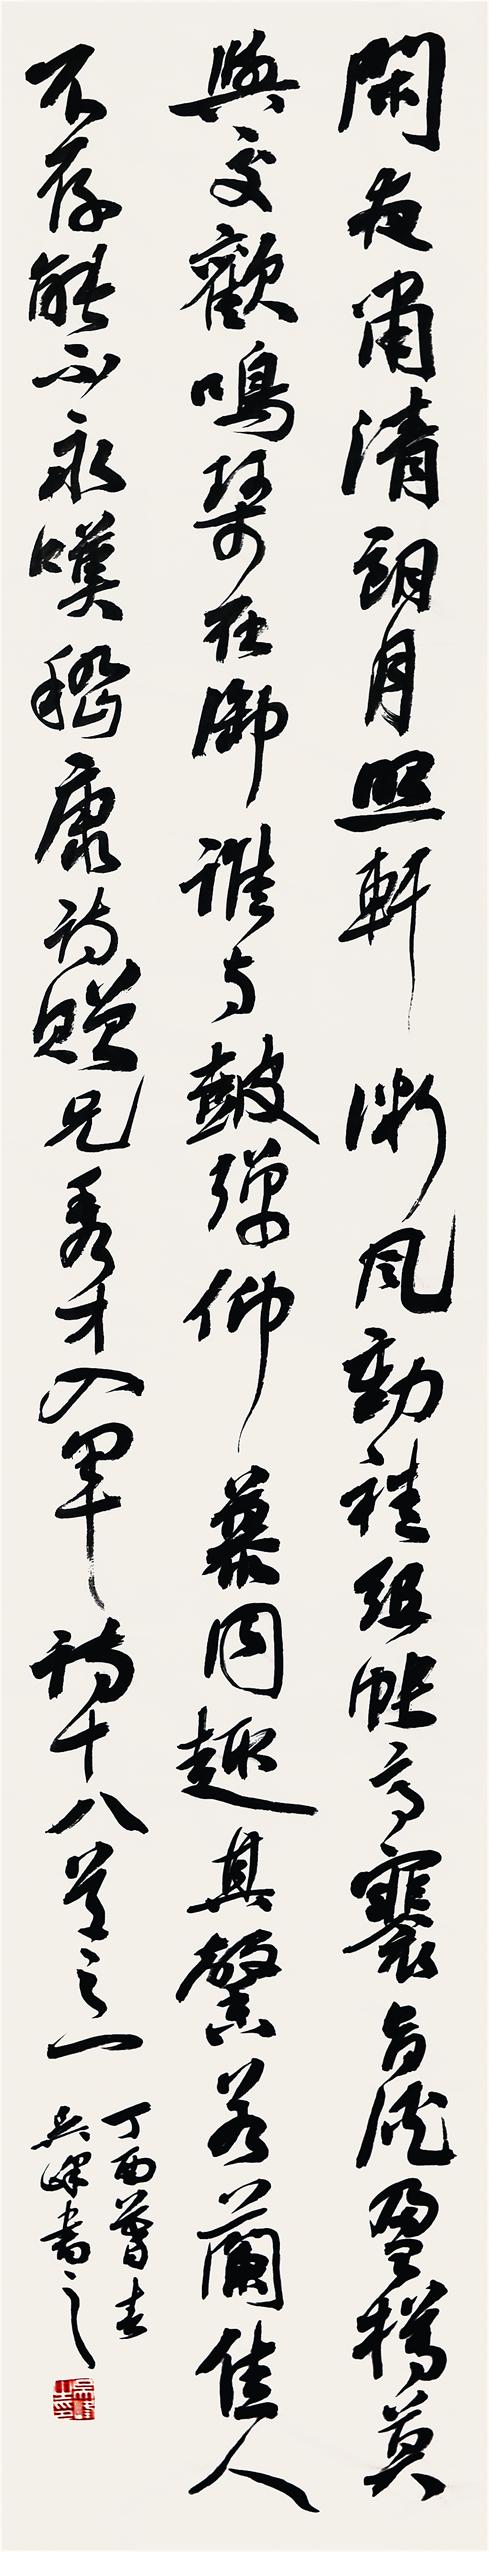 閑夜肅清朗月照軒微風動袿組帳高褰旨酒盈樽莫
與交歡鳴琴在御誰与皷彈仰慕同趣其馨若蘭佳人
不存能不永嘆嵇康詩贈兄秀才入軍詩十八首之一
丁酉暮春
吴峰書之